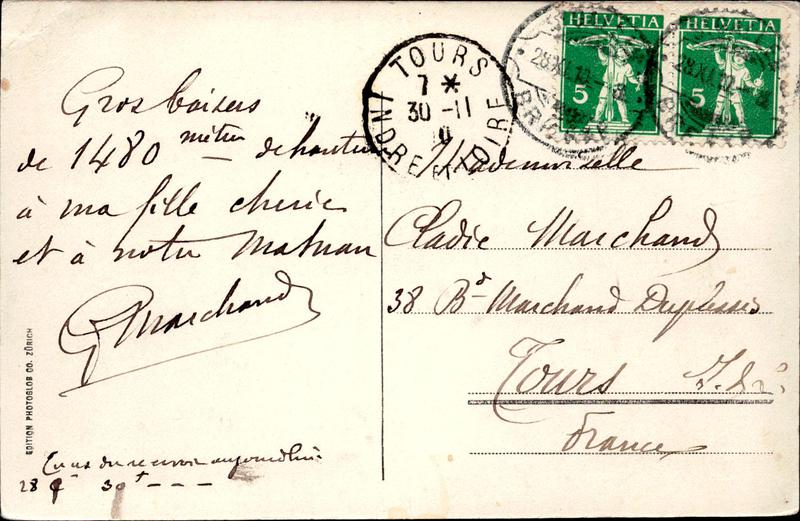 Gros baisers
de 1480 mètres de hauteur
à ma fille cherie
et à notre Maman
G Marchand
28 30
EDITION PHOTOGLOB CO. ZÜRICH
TOURS
7 *
30 -11
INDRE ET LOIRE
HELVETIA
5
HELVETIA
5
28.XI.12
BRIG
28.XI.12
Mademoiselle
Cladie Marchand
38 Bd Marchand Duplessis
Tours I. &
France